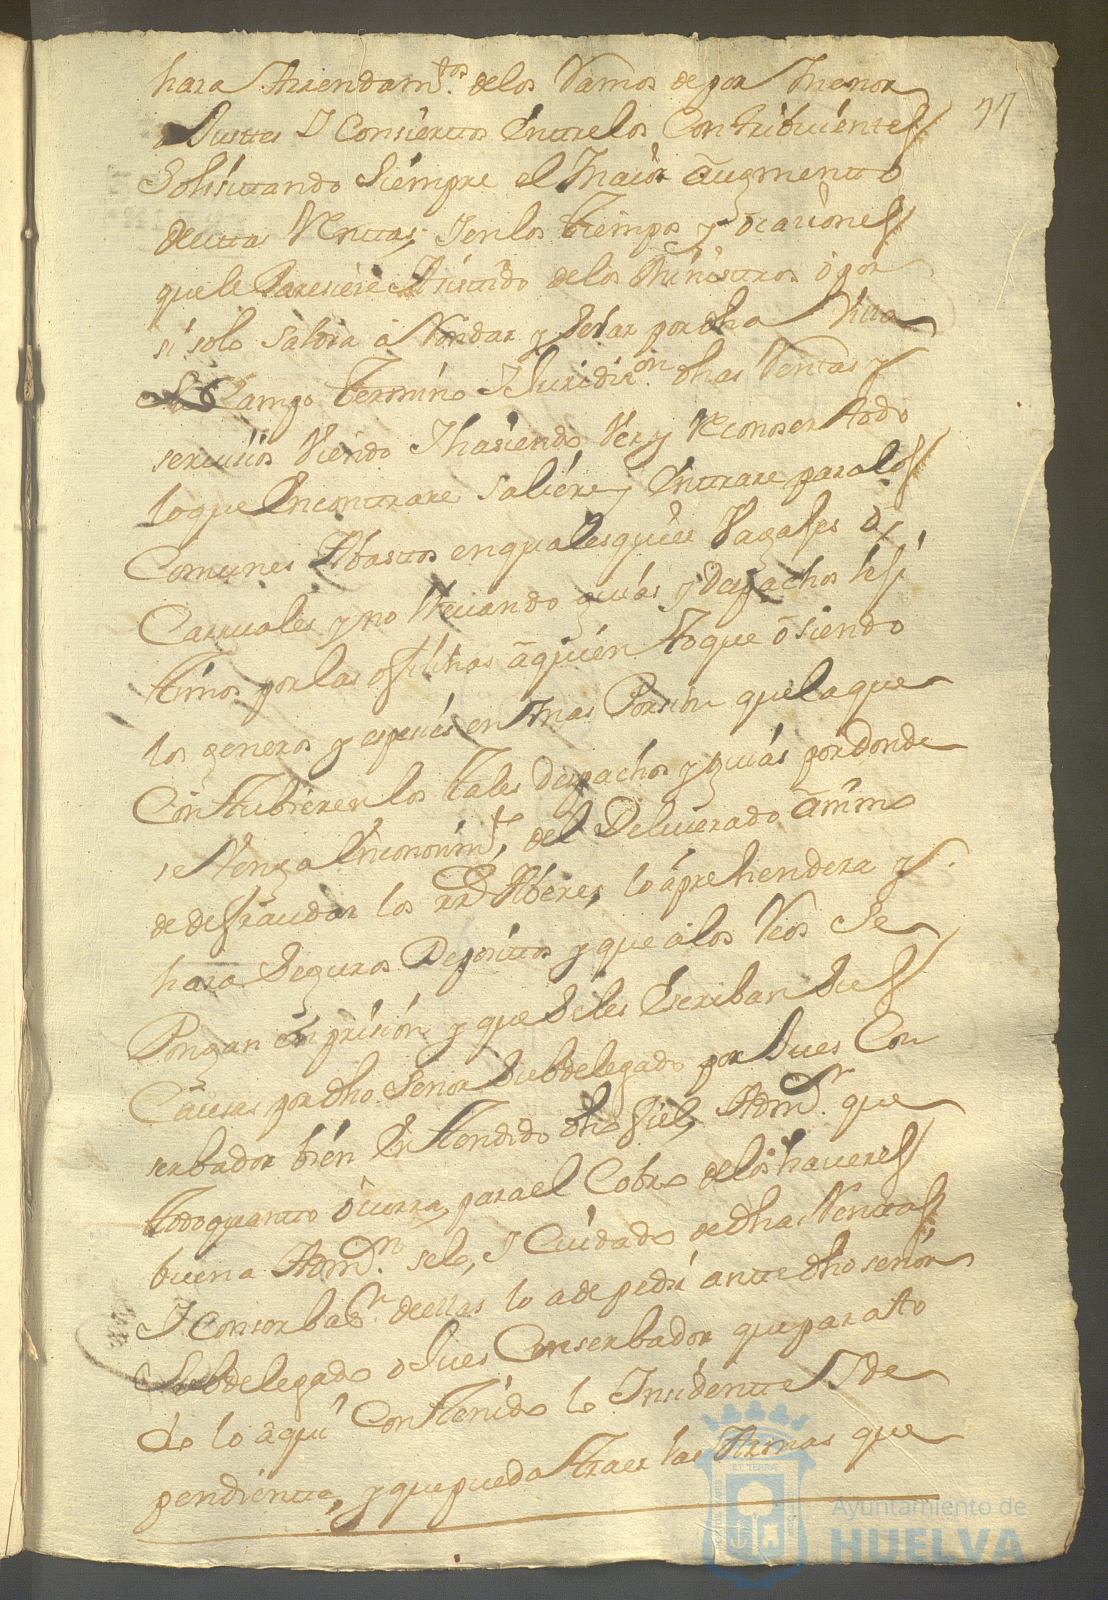 hara Arrendam.tos de los Ramos de por Menor
Justtes I Consierttos Entre los Contribuientes
Solisitando Siempre el Maior augmentto
destas Renttas, I en los tiempos y ocaciones
que le Paresiere Asistido de los Ministtros, o por
si solo Saldra a Rondar y Selar por dha Villa
Su Campo termino I Juridiz.on dhas Renttas y
servicios Viendo I hasiendo Ver y Reconoser todo
lo que Encontrare Saliere y Entrare para los
Comunes Abastos en quales quier Vagajes o
Carruales y no llevando guias y Despachos lexi
timos por las ofisinas a quien toque o siendo
los generos y espesies en mas Porsion que la que
Contubieren los tales Despachos y guias por donde
se Venga En conosim.to del Deliverado animo
de defraudar los Rs Aberes, lo aprehendera y
hara Seguros Deposittos y que a los Reos Se
Pongan en prision y que Se les Escriban Sus
Causas por dho Señor Subdelegado por Jues Con
serbador bien Entendido dho fiel, Adm.r que
todo quantto ocurra, para el Cobro de los haveres
buena Adm.on selo, I Cuidado de dhas Renttas
I Conserbaz.n de ellas lo a de pedir antte dho señor
Subdelegado o Jues Conserbador que para to
do lo aqui Contenido lo Insidentte I de
pendientte, y que pueda traer las Armas que
77
Ayuntamiento de
HUELVA